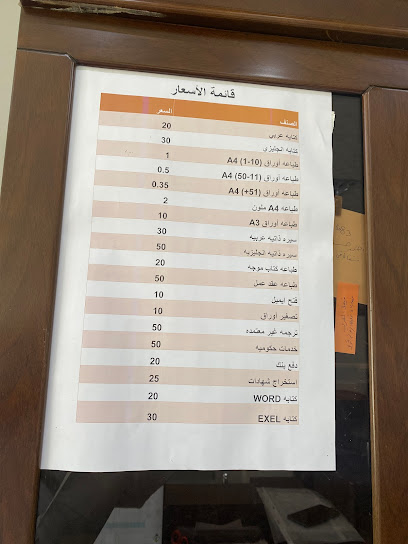 قائمة الأسعار
الصنف السعر
كتابه عربي 20
كتابه انجليزي 30
طباعه أوراق A4 (1-10) 1
طباعه أوراق A4 (50-11) 0.5
طباعه أوراق A4 (+51) 0.35
طباعه A4 ملون 2
طباعه أوراق A3 10
سيره ذاتيه عربيه 30
سيره ذاتيه انجليزيه 50
طباعه كتاب موجه 20
طباعه عقد عمل 50
فتح ايميل 10
تصغير أوراق 10
ترجمه غير معتمده 50
خدمات حكوميه 50
دفع بنك 20
استخراج شهادات 25
كتابه WORD 20
كتابه EXEL 30